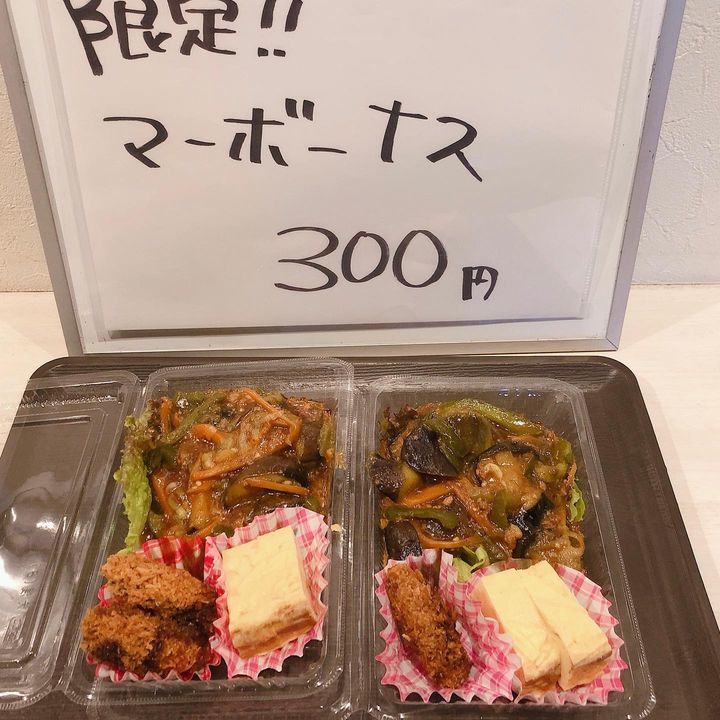 限定!!
マーボーナス
300円